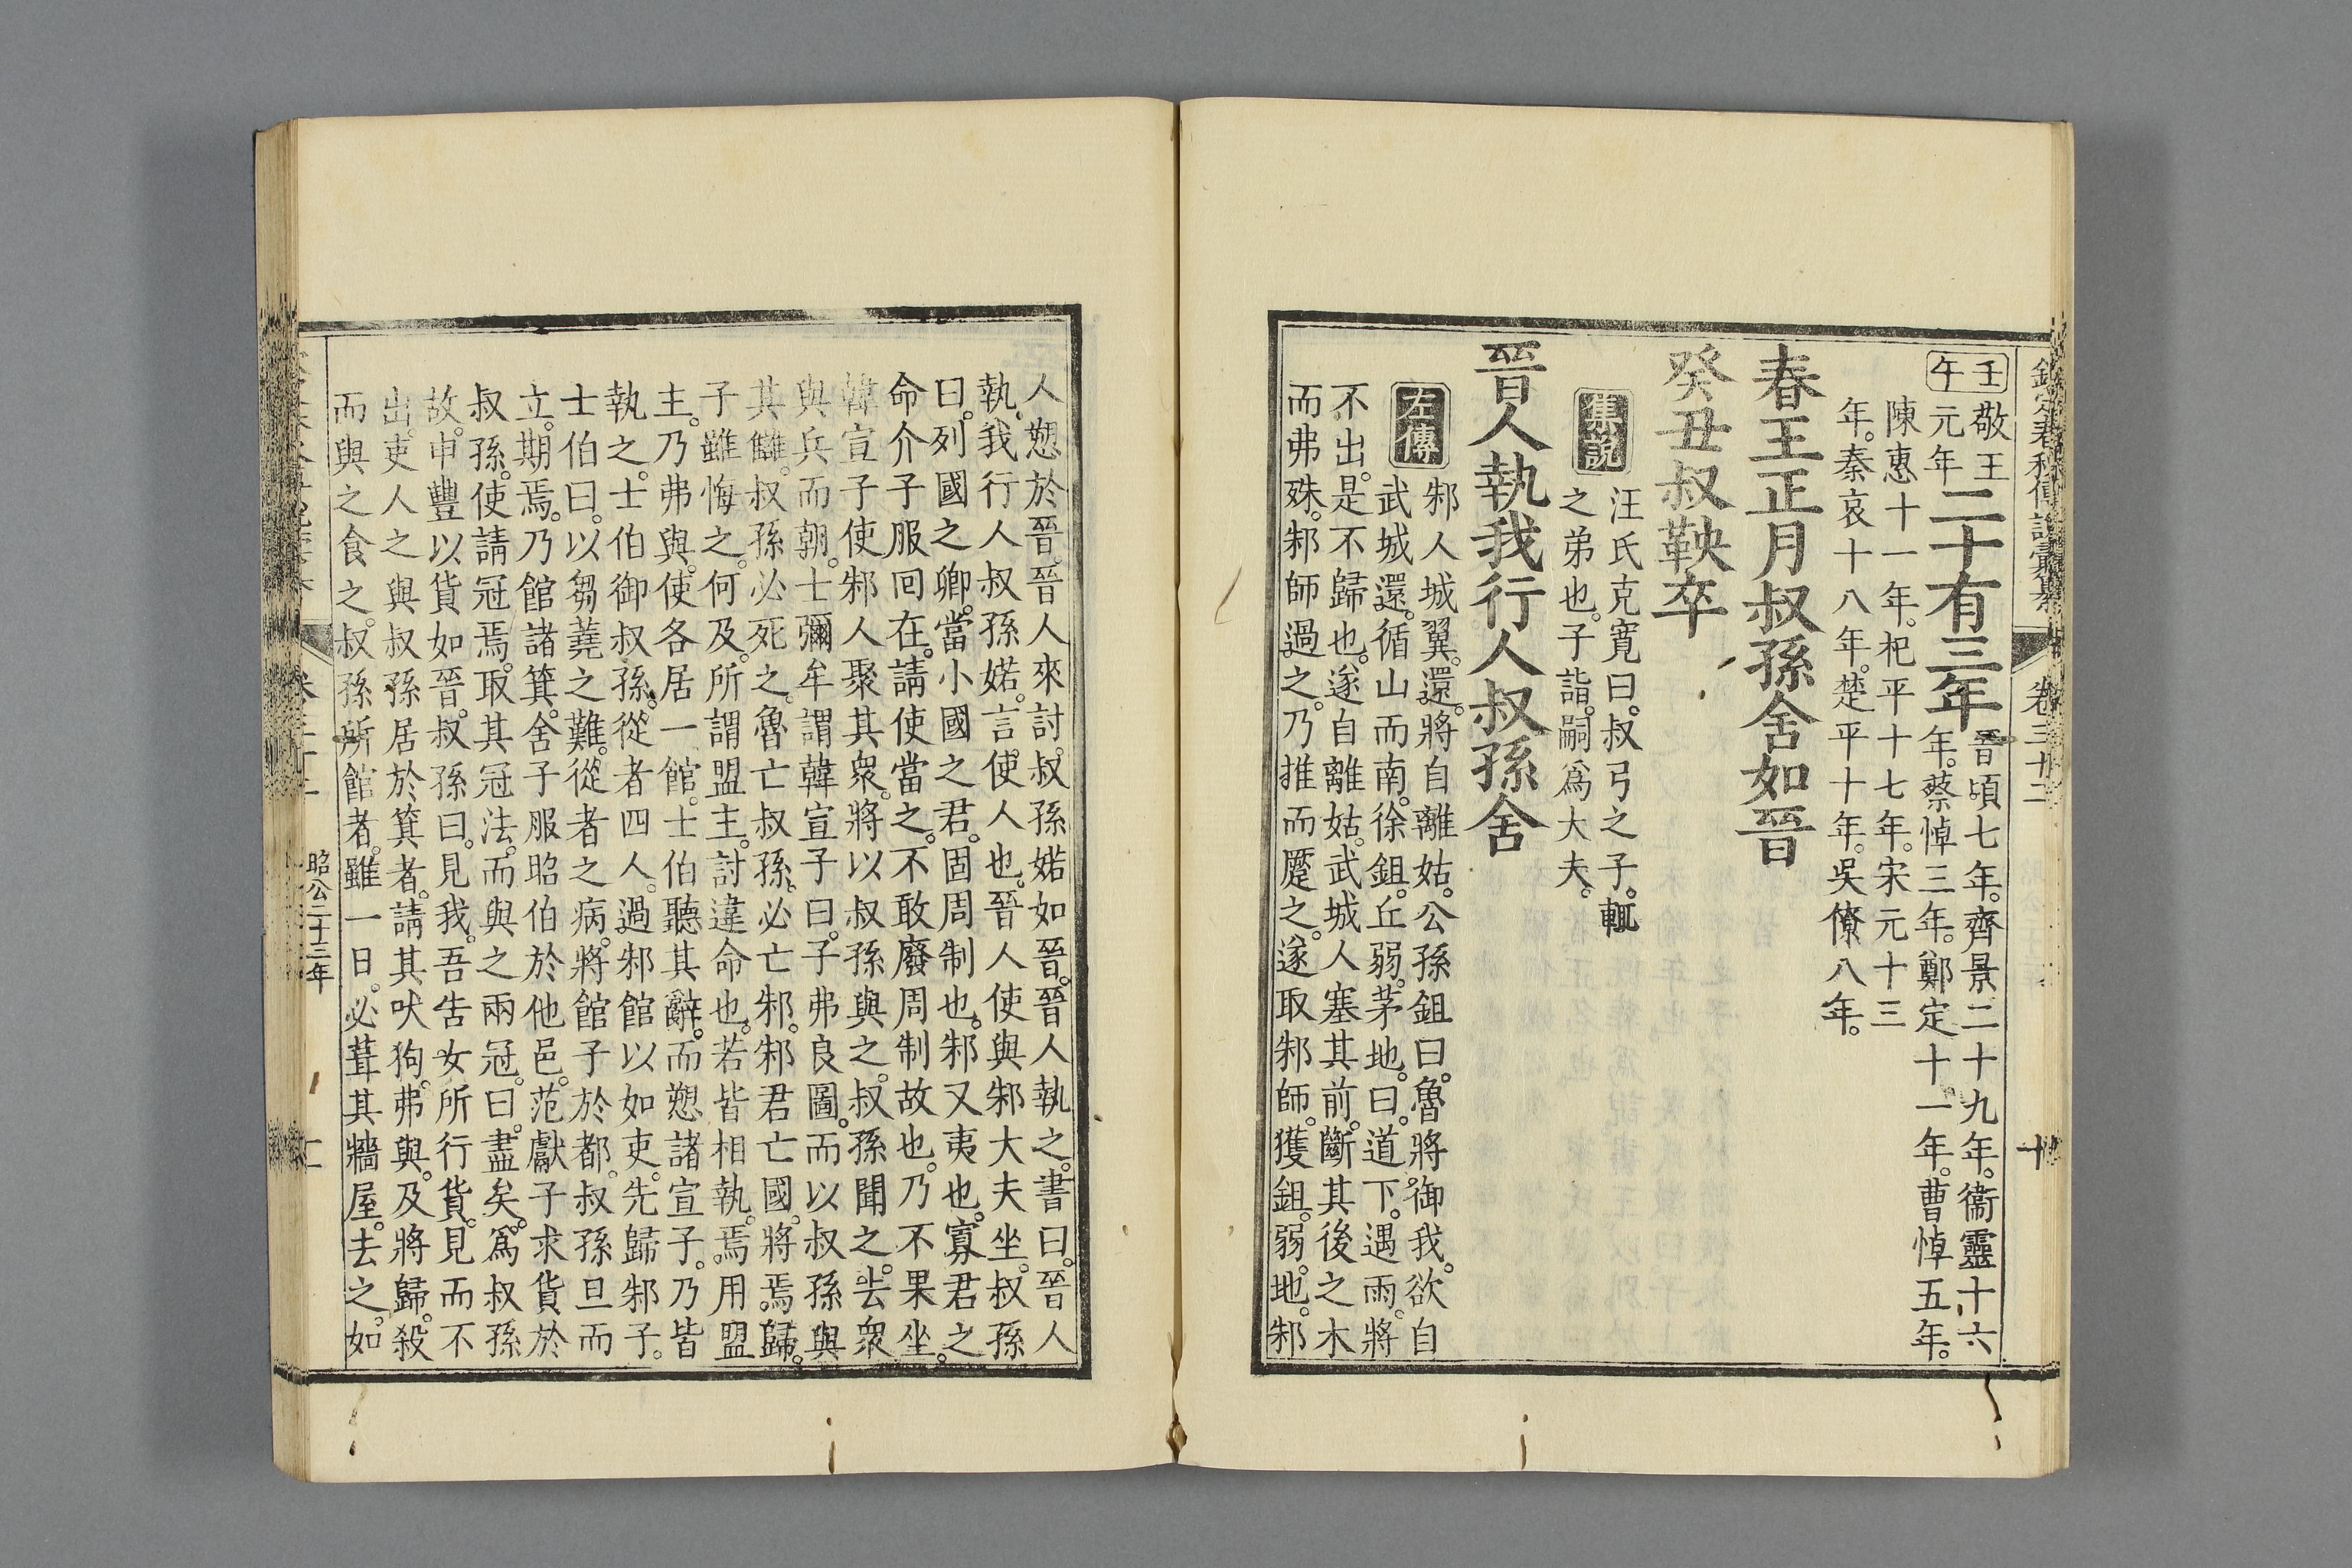 欽定春秋傳說彙纂 卷三十二
壬午 敬王元年 二十有三年 晉頃七年。齊景二十九年。衞靈十六
年。蔡悼三年。鄭定十一年。曹悼五年。
陳惠十一年。杞平十七年。宋元十三
年。秦哀十八年。楚平十年。吳僚八年。
春王正月叔孫舍如晉
癸丑叔鞅卒
集說 汪氏克寬曰。叔弓之子。輒
之弟也。子詣。嗣爲大夫。
晉人執我行人叔孫舍
左傳 邾人城翼。還。將自離姑。公孫鉏曰。魯將御我。欲自
武城還。循山而南。徐鉏。丘弱。茅地。曰。道下。遇雨。將
不出。是不歸也。遂自離姑。武城人塞其前。斷其後之木
而弗殊。邾師過之。乃推而蹷之。遂取邾師。獲鉏。弱。地。邾
人愬於晉。晉人來討。叔孫婼如晉。晉人執之。書曰。晉人
執我行人叔孫婼。言使人也。晉人使與邾大夫坐。叔孫
曰。列國之卿。當小國之君。固周制也。邾又夷也。寡君之
命介子服回在。請使當之。不敢廢周制故也。乃不果坐。
韓宣子使邾人聚其衆。將以叔孫與之。叔孫聞之。去衆
與兵而朝。士彌牟謂韓宣子曰。子弗良圖。而以叔孫與
其讎。叔孫必死之。魯亡叔孫。必亡邾。邾君亡國。將焉歸。
子雖悔之。何及。所謂盟主。討違命也。若皆相執。焉用盟
主。乃弗與。使各居一館。士伯聽其辭。而愬諸宣子。乃皆
執之。士伯御叔孫。從者四人。過邾館以如吏。先歸邾子。
士伯曰。以芻蕘之難。從者之病。將館子於都。叔孫旦而
立。期焉。乃館諸箕。舍子服昭伯於他邑。范獻子求貨於
叔孫。使請冠焉。取其冠法。而與之兩冠。曰。盡矣。爲叔孫
故。申豐以貨如晉。叔孫曰。見我。吾告女所行貨。見而不
出。吏人之與叔孫居於箕者。請其吠狗。弗與。及將歸。殺
而與之食之。叔孫所館者。雖一日。必葺其牆屋。去之。如
昭公二十三年